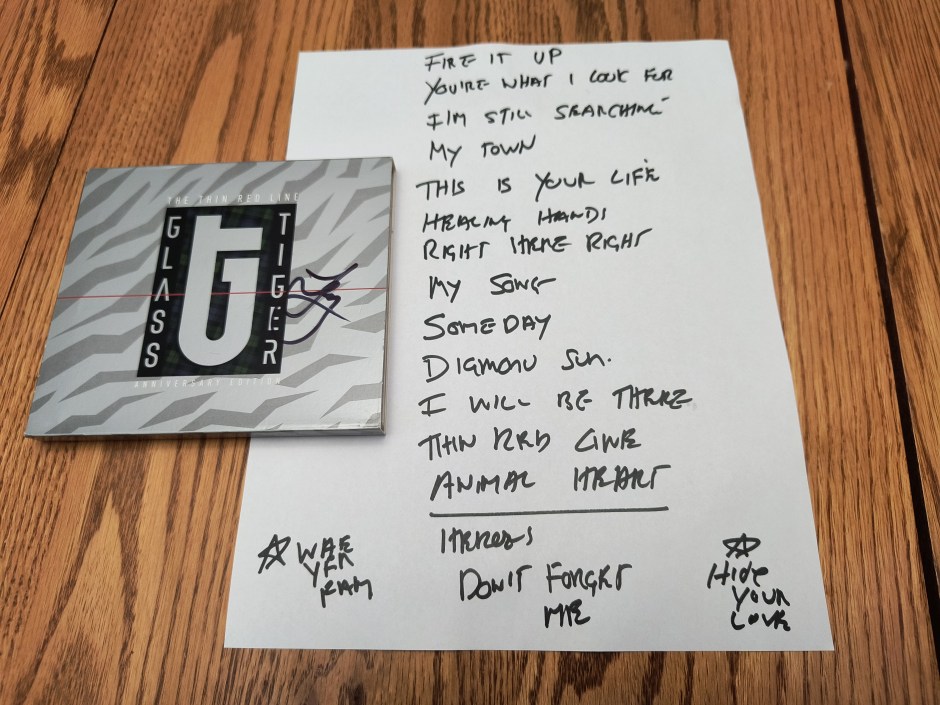 THE THIN RED LINE
GLASS
TIGER
ANNIVERSARY EDITION
FIRE IT UP
YOU'RE WHAT I LOOK FOR
I'M STILL SEARCHING
MY TOWN
THIS IS YOUR LIFE
HEALING HANDS
RIGHT HERE RIGHT
MY SONG
SOMEDAY
DIAMOND SUN.
I WILL BE THERE
THIN RED LINE
ANIMAL HEART
HEROES
DON'T FORGET
ME
WAE
YER
FAM
HIDE
YOUR
LOVE